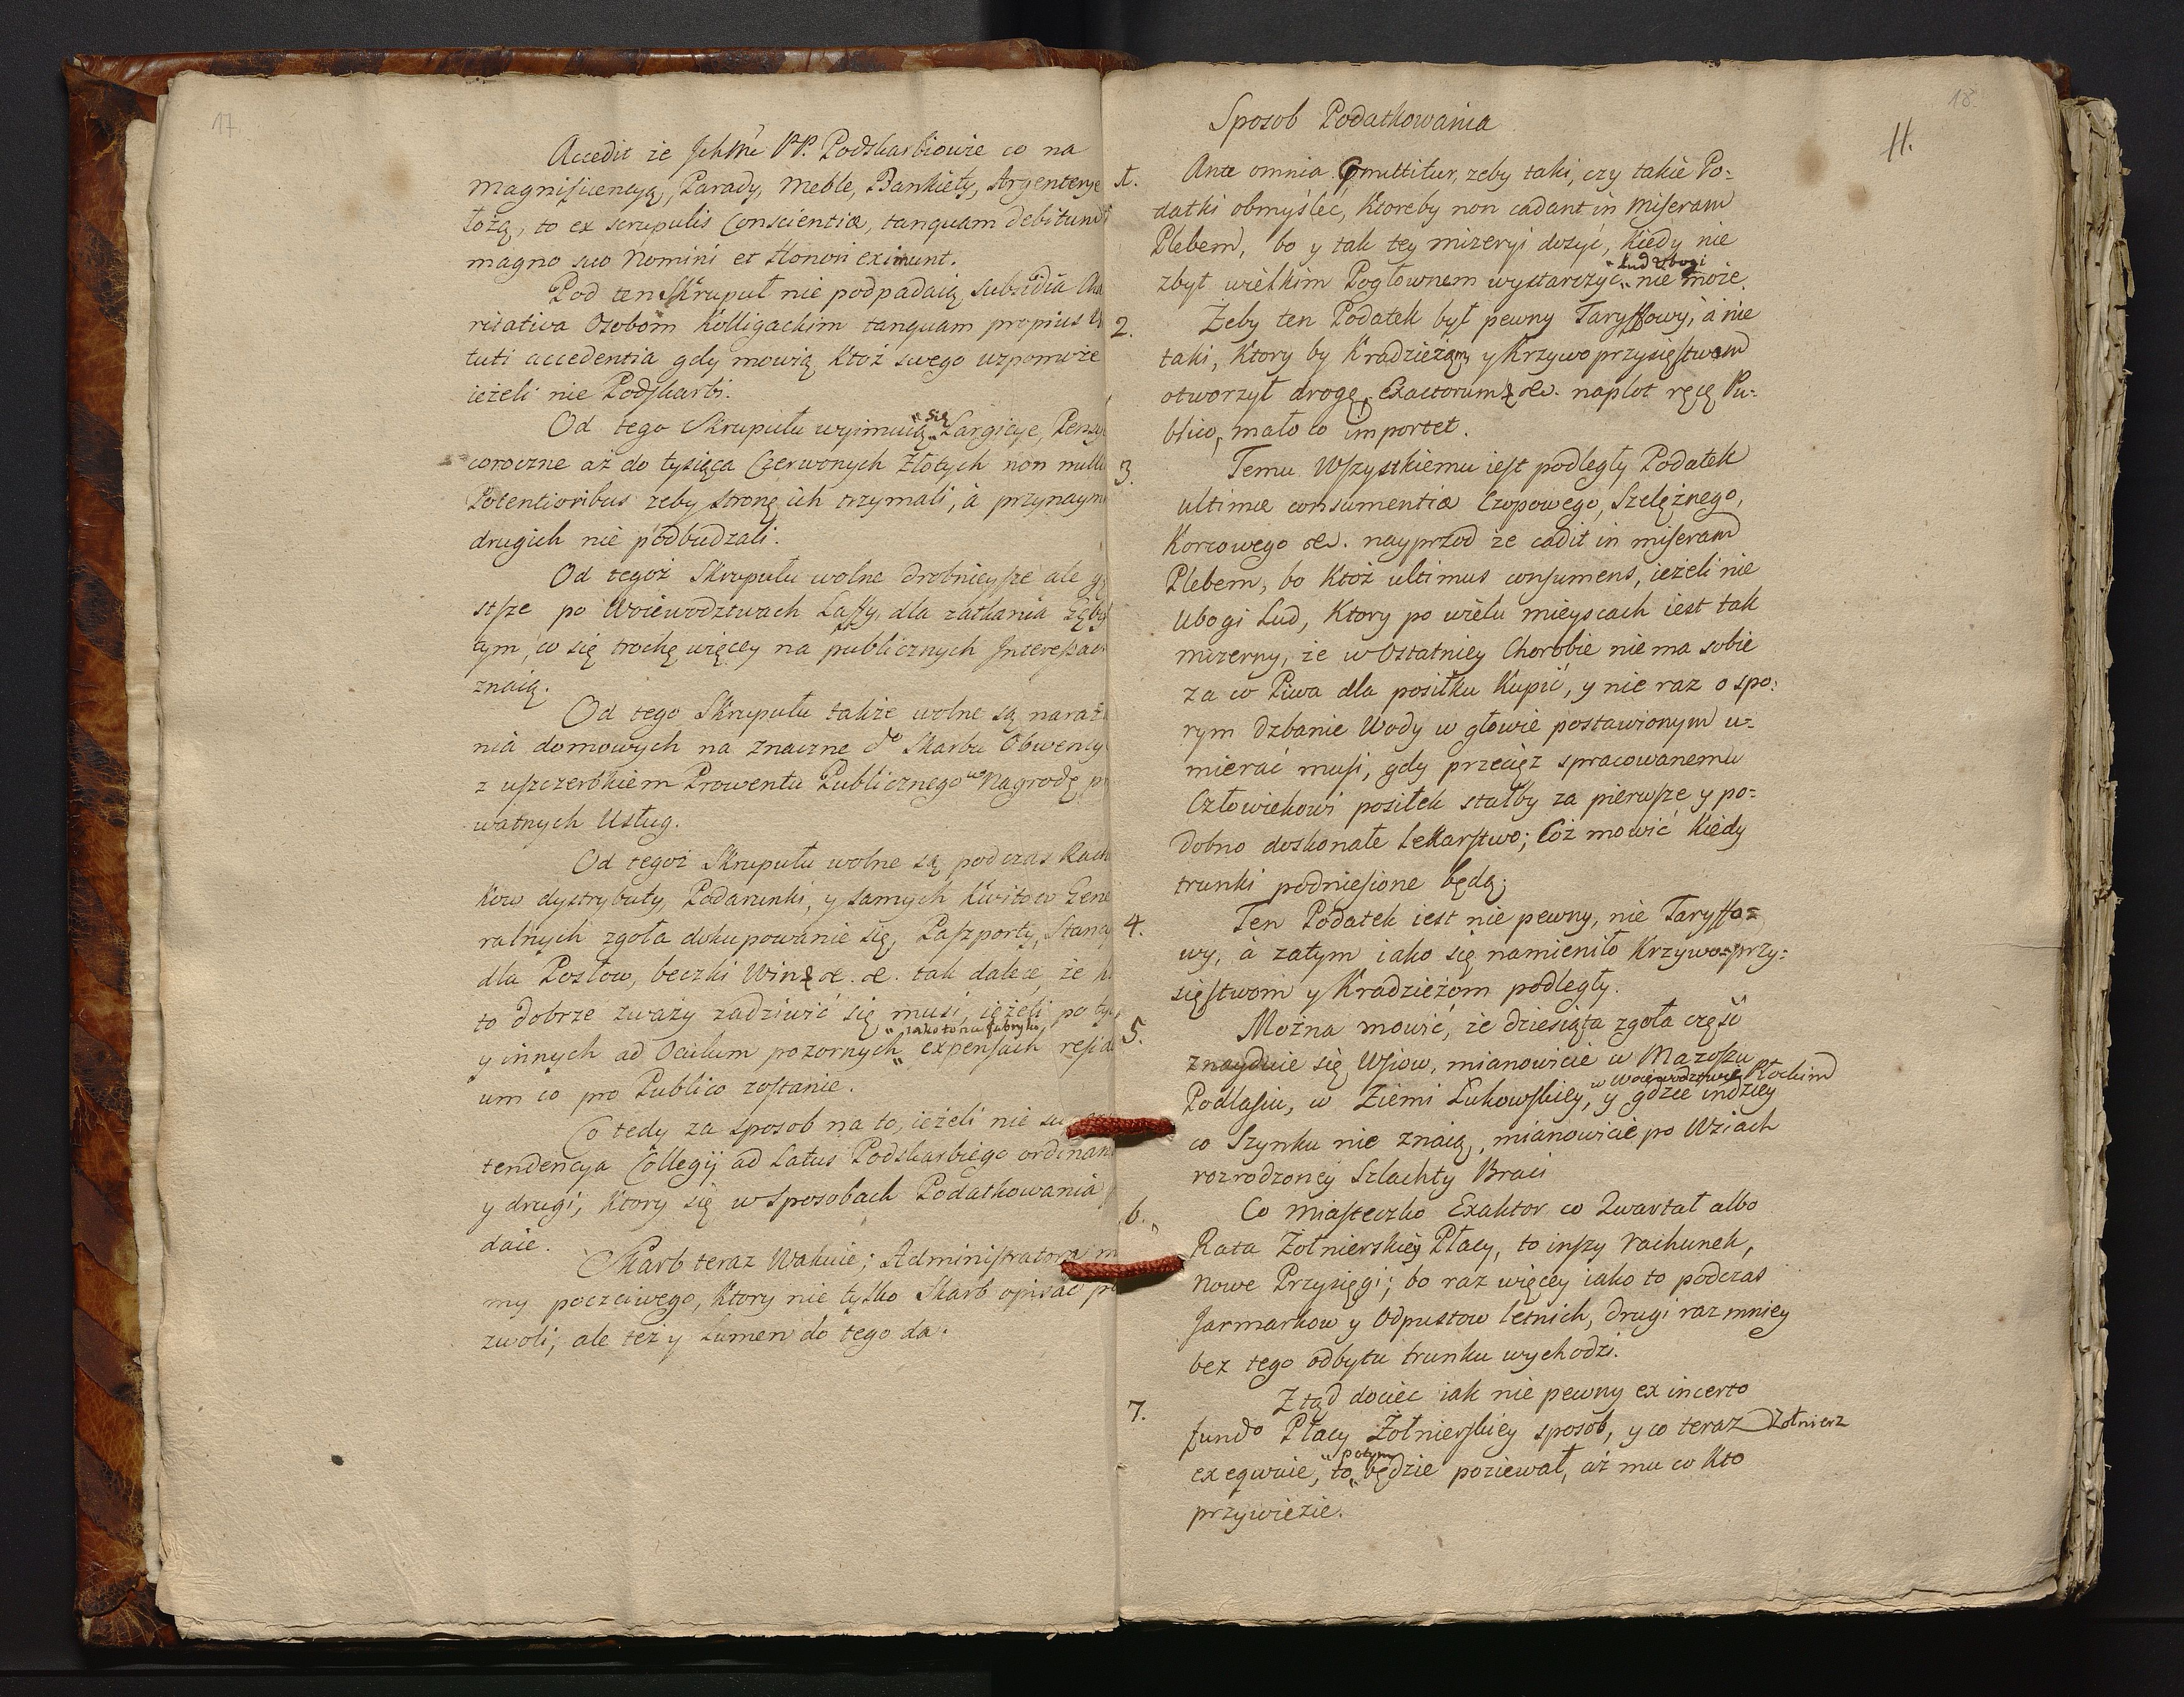 17.
Accedit że JchMć PP. Podskarbiowie co na
magnificencyą, Parady, Meble, Bankiety, Argenterye
łożą, to ex scrupulis Conscientiæ, tanquam debitum
magno suo Nomini et Honori eximunt.
Pod ten Skrupuł nie podpadaią, subsidia Cha
ritativa Osobom Kolligackim tanquam propius Vi
tuti accedentia gdy mowią Ktoż swego wzpomoże
ieżeli nie Podskarbi.
Od tego Skrupułu wyimuią "się" Largicye, Pensy
coroczne aż do tysiąca Czerwonych Złotych non nullis
Potentioribus żeby stronę ich trzymali, à przynaym
drugich nie podbudzali.
Od tegoż Skrupułu wolne drobnieysze ale gę
stsze po Woiewodztwach Lassy, dla zatkania Zęby
tym, co się trochę więcey na publicznych Interessach
znaią.
Od tego Skrupułu także wolne są naraż
nia domowych na znaczne do Skarbu Obwency
z uszczerbkiem Prowentu Publicznego w Nagrodę pr
watnych Usług.
Od tegoż Skrupułu wolne są podczas Rach
kow dystrybuty, Podarunki, y samych Kwitow Gene
ralnych zgoła dokupowanie się, Paszporty, Stancy
dla Posłow, beczki Win &. &. tak dalece, że k
to dobrze zważy zadziwić się musi, ieżeli po ty
"iako to na fabryki,
y innych ad Oculum pozornych " expensach resid
um co pro Publico zostanie.
Co tedy za sposob na to, ieżeli nie su
tendencya Collegij ad Latus Podskarbiego ordinan
y drugi, Ktory się w Sposobach Podatkowania
daie.
Skarb teraz Wakuie; Administratora m
my poczciwego, Ktory nie tylko Skarb opisać po
zwoli, ale też y Lumen do tego da.
18.
11.
Sposob Podatkowania
1. Ante omnia Omittitur, żeby taki, czy takie Po=
datki obmyśleć, Ktoreby non cadant in Miseram
Plebem, bo y tak tey mizeryi dosyć, Kiedy nie
"Lud Ubogi
zbyt wielkim Pogłownem wystarczyć " nie może.
2. Żeby ten Podatek był pewny Taryffowy, à nie
taki, Ktory by Kradzieżom y Krzywoprzysięstwom
otworzył drogę, Exactorum &. naplot ręcę Pu=
blico, mało co importet.
3. Temu Wszystkiemu iest podległy Podatek
ultimæ consumentiæ Czopowego, Szelężnego,
Korcowego &. nayprzod że cadit in miseram
Plebem, bo Ktoż ultimus consumens, ieżeli nie
Ubogi Lud, Ktory po wielu mieyscach iest tak
mizerny, że w Ostatniey Chorobie nie ma sobie
za co Piwa dla posiłku Kupić, y nie raz o spo:
rym dzbanie Wody w głowie postawionym u=
mierać musi, gdy przecięż spracowanemu
Człowiekowi posiłek stałby za pierwsze y po=
dobno doskonałe Lekarstwo; Coż mowić Kiedy
trunki podniesione będą;
4. Ten Podatek iest nie pewny, nie Taryffo=
wy, à zatym iako się namieniło Krzywo=przy:
sięstwom y Kradzieżom podległy.
5. Można mowić, że dziesiąta zgoła część
znayduie się Wsiow, mianowicie w Mazoszu
w Woiewodztwie Płockim
Podlasiu, w Ziemi Łukowskiey, y gdzie indziey
co Szynku nie znaią, mianowicie po Wsiach
rozrodzoney Szlachty Braci
6. Co miasteczko Exaktor co Kwartał albo
Rata Żołnierskiey Płacy, to inszy rachunek,
Nowe Przysięgi; bo raz więcey iako to podczas
Jarmarkow y Odpustow letnich, drugi raz mniey
bez tego odbytu trunku wychodzi.
7. Ztąd dociec iak nie pewny ex incerto
fundo Płacy Żołnierskiey sposob, y co teraz Żołnierz
"potym
exeqwuie, to " będzie poziewał, aż mu co Kto
przywiezie.